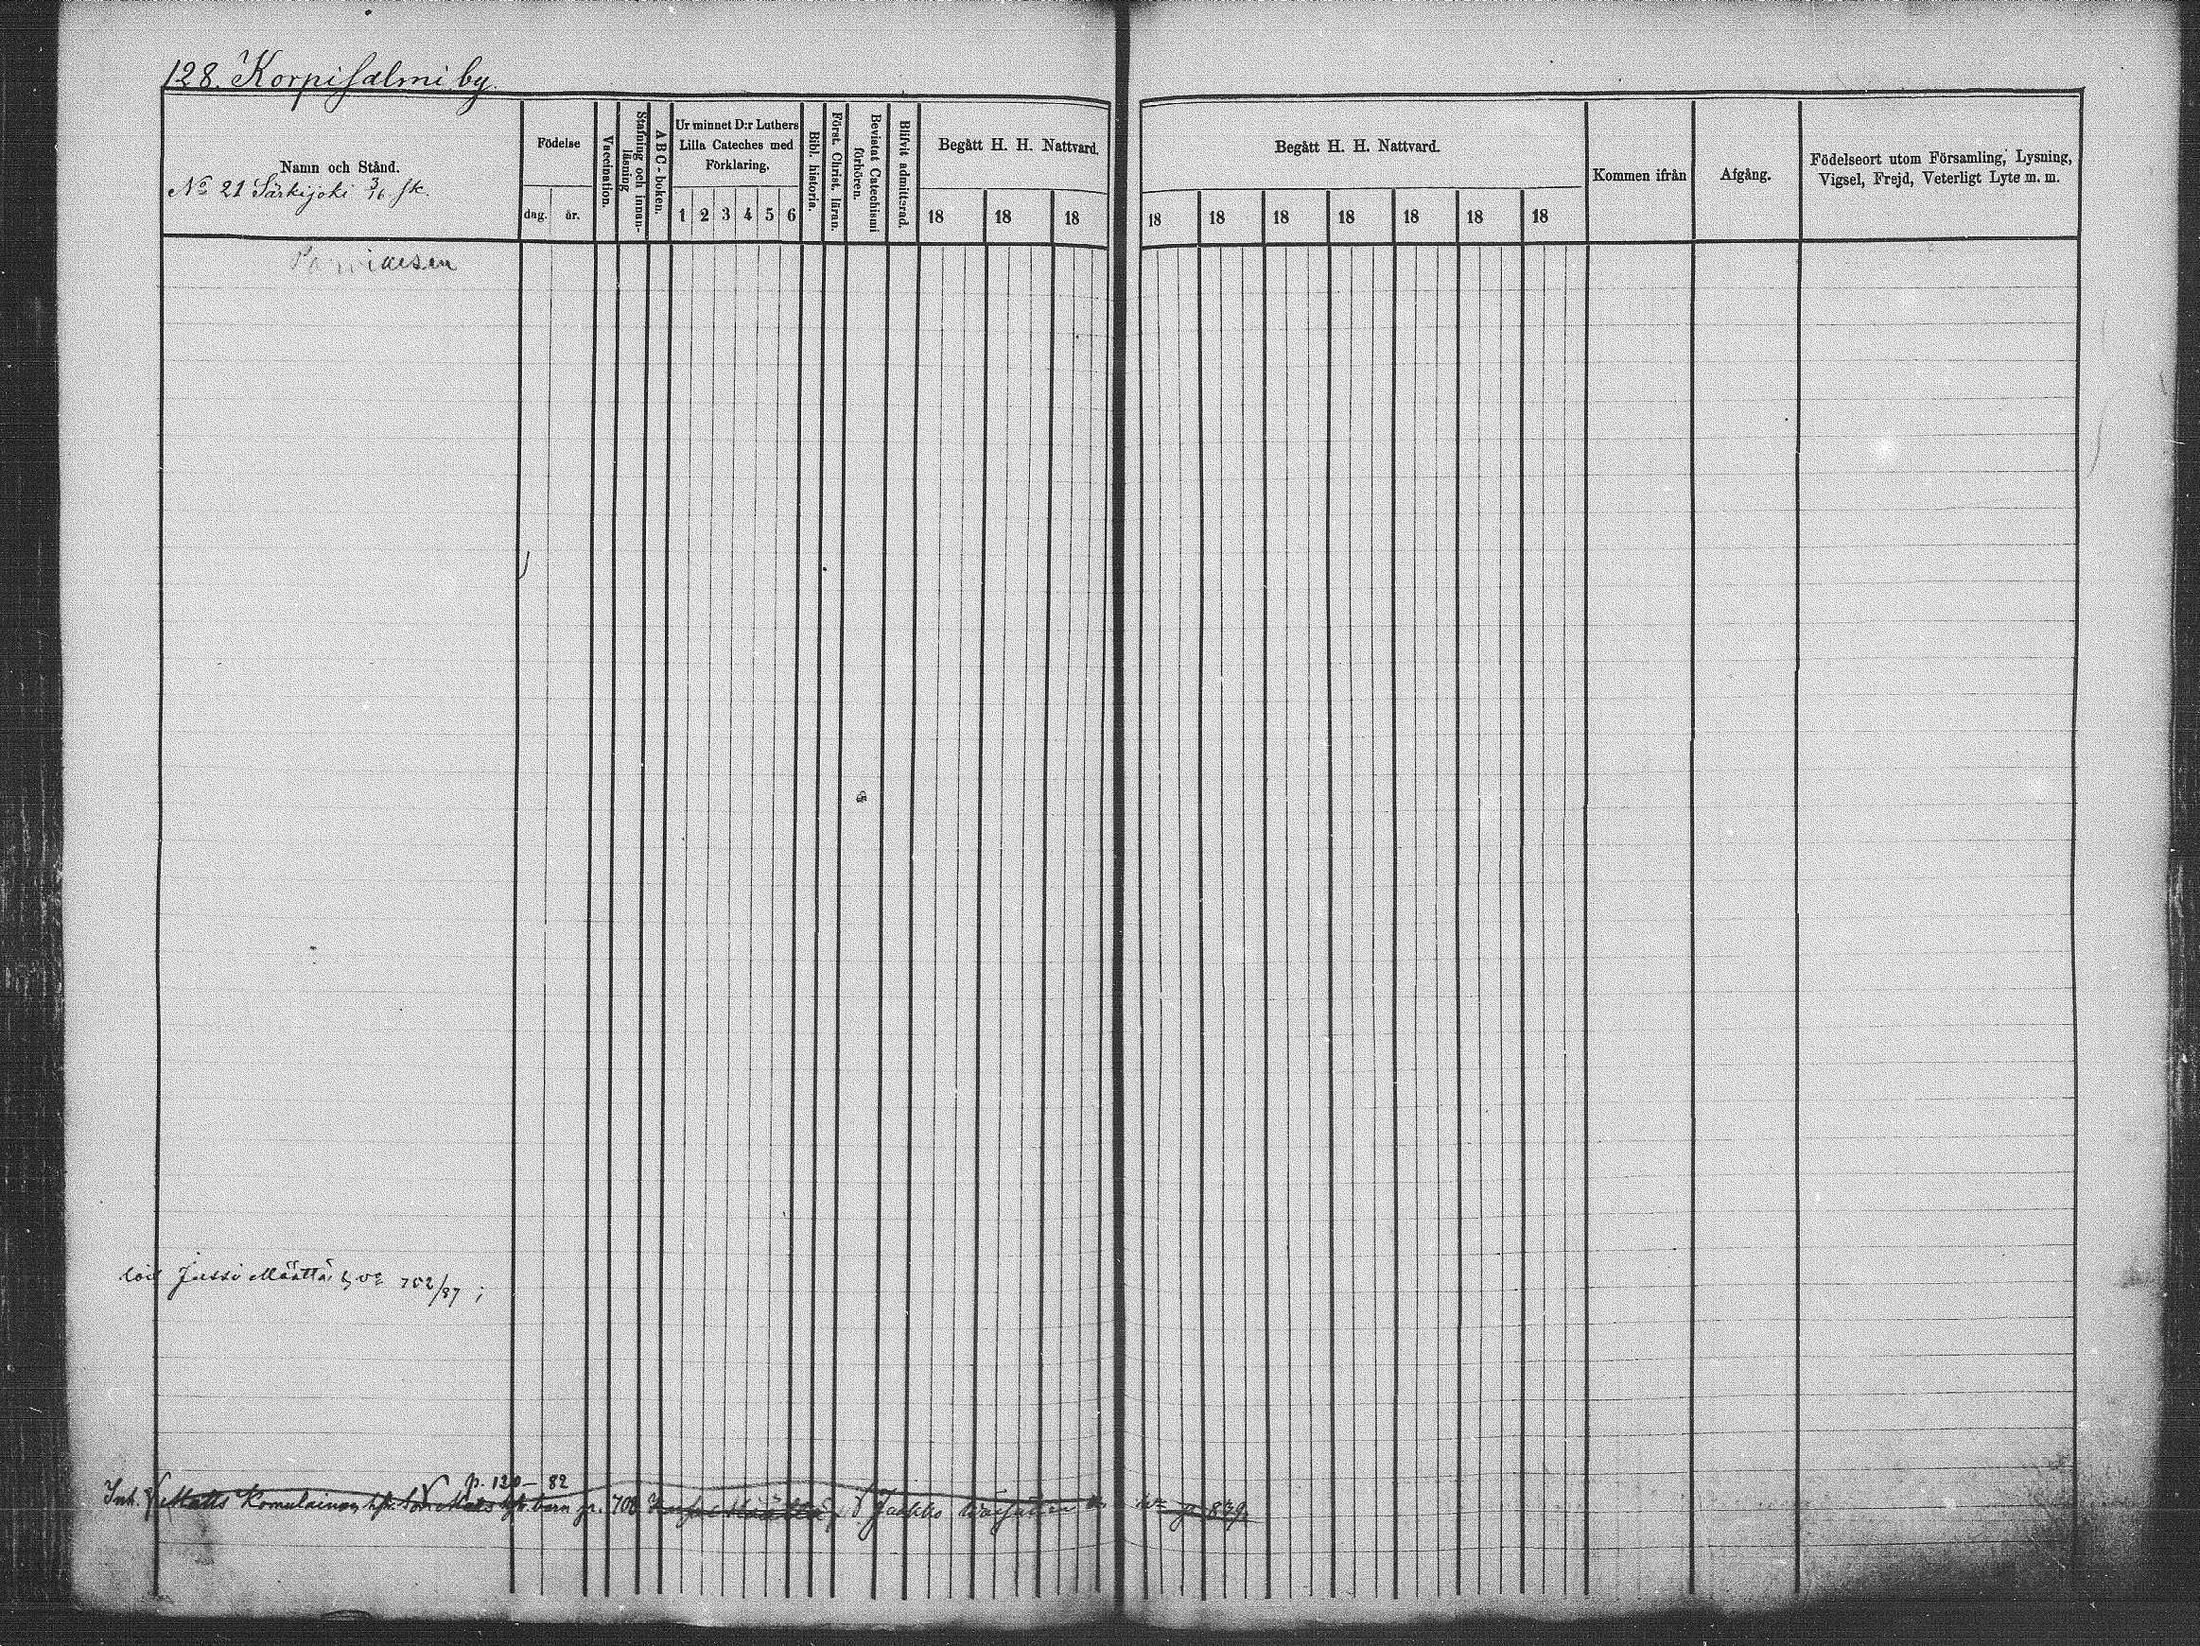 128. Korpisalmi by.
Namn och Stånd.
No 21 Särkijoki 3/16 sk.
Födelse
dag. år.
Vaccination.
Stafning och innanläsning
A B C - boken.
Ur minnet D:r Luthers Lilla Cateches med Förklaring.
1 2 3 4 5 6
Bibl. historia.
Först. Christ. läran.
Bevistat Catechismi förhören.
Blifvit admitterad.
Begått H. H. Nattvard.
18 18 18
Begått H. H. Nattvard.
18 18 18 18 18 18 18
Kommen ifrån
Afgång.
Födelseort utom Församling, Lysning, Vigsel, Frejd, Veterligt Lyte m. m.
Jussi Määttä 702/87 ;
p. 120 – 82
Inh. Matts Komulainen barn p. 708 Jaakko p 879.